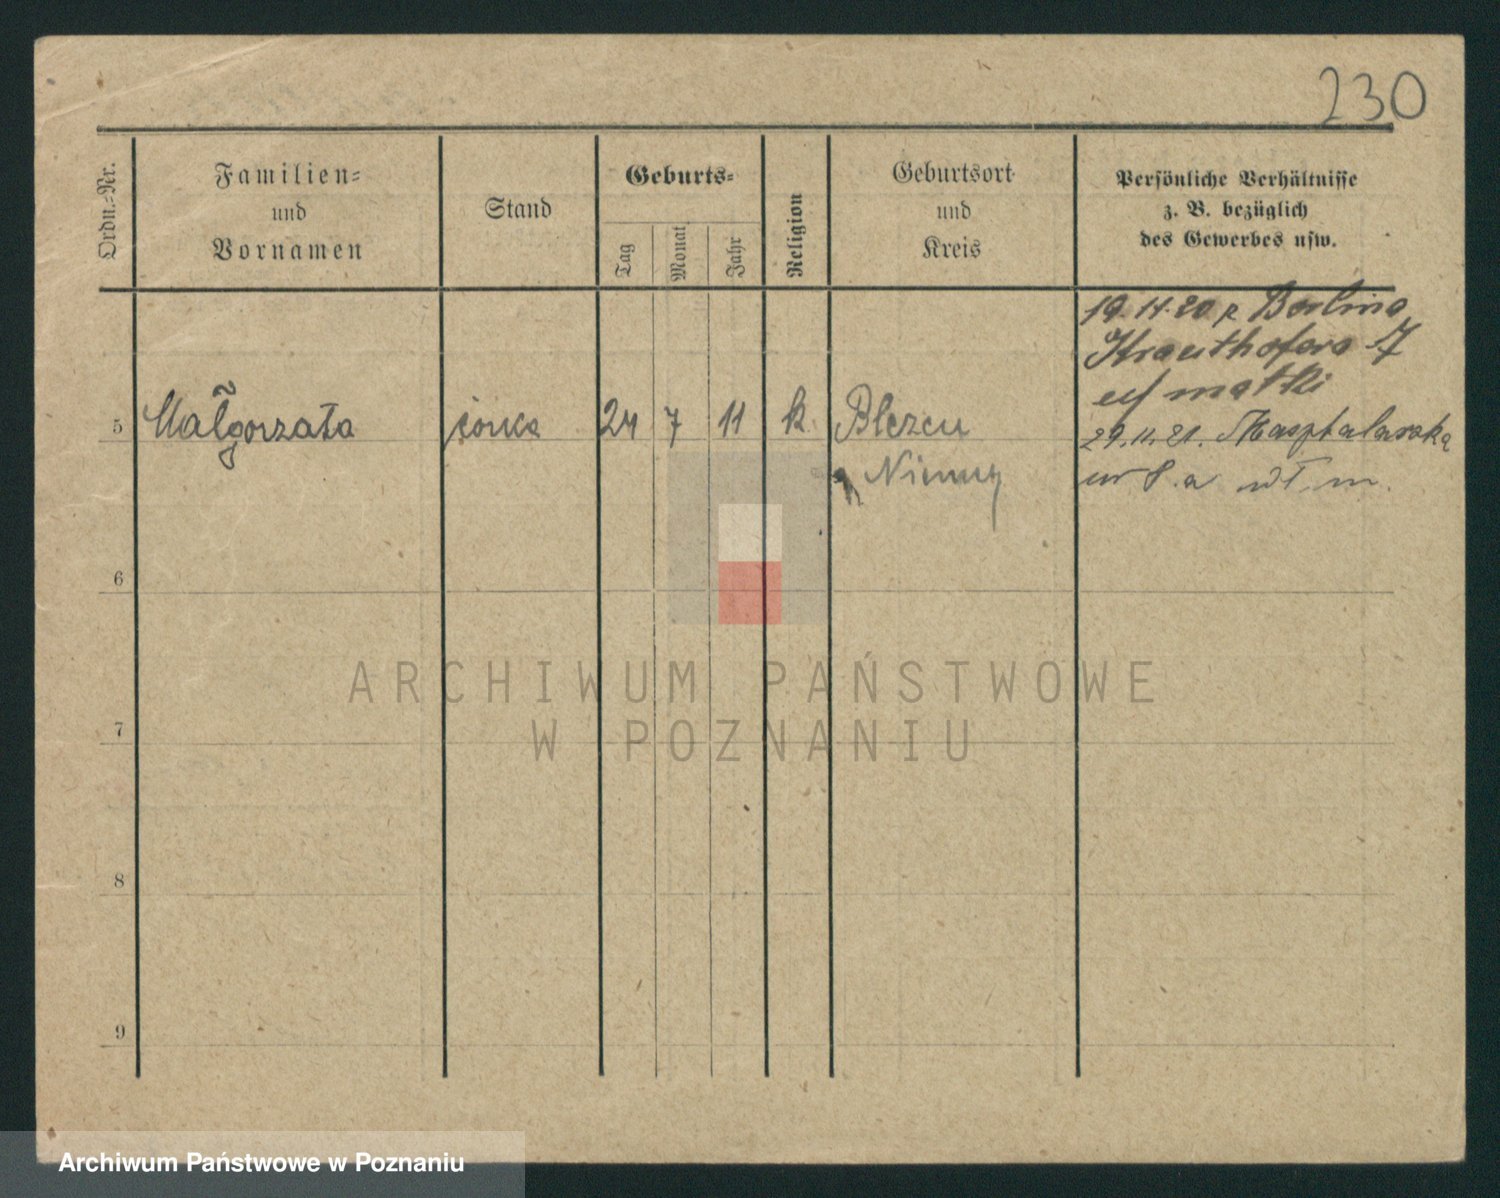 230
Ordn.-Nr.
Familien-
und
Vornamen
Stand
Geburts-
Tag
Monat
Jahr
Religion
Geburtsort
und
Kreis
Persönliche Verhältnisse
z. B. bezüglich
des Gewerbes usw.
19.11.20 z Berlina
Krauthofera 7
u/ matki
5 Małgorzata córka 24 7 11 k. Blezen
29.11.21. Masztalarska
Niemcy
wł. m.
6
7
8
9
ARCHIWUM PAŃSTWOWE
W POZNANIU
Archiwum Państwowe w Poznaniu